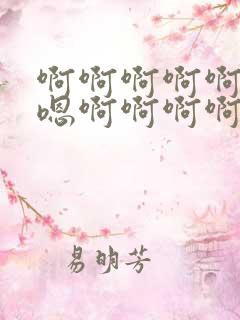 啊啊啊啊啊
嗯啊啊啊啊
易明芳